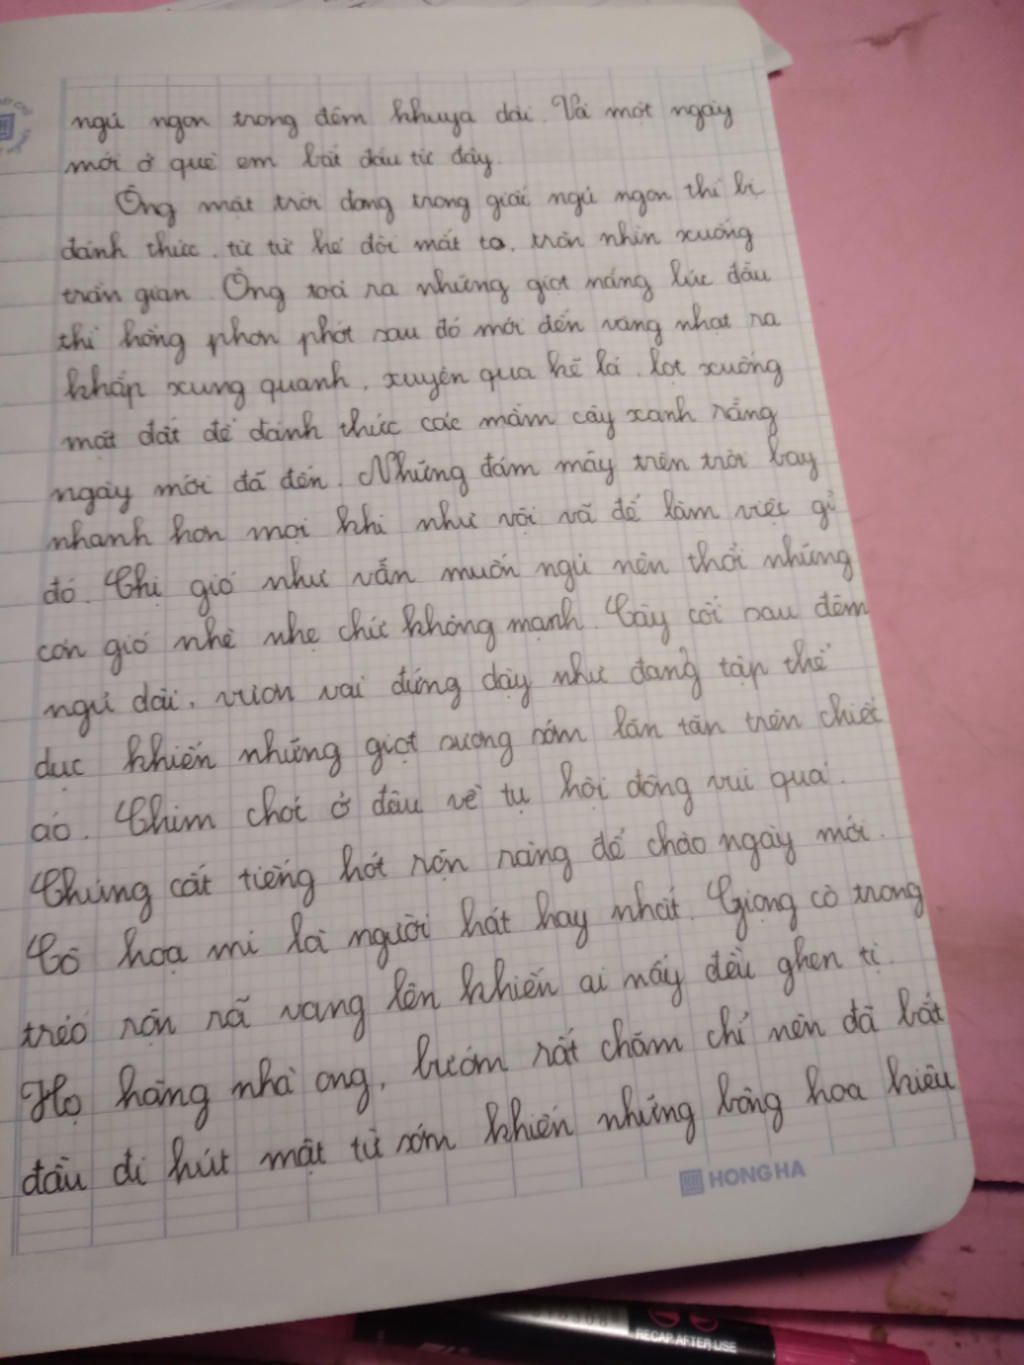 ngủ ngon trong đêm khuya dài. Và một ngày
mới ở quê em bắt đầu từ đây.
Ông mặt trời đang trong giấc ngủ ngon thì bị
đánh thức, từ từ hé đôi mắt to, tròn nhìn xuống
trần gian. Ông toả ra những giọt nắng lúc đầu
thì hồng phơn phớt sau đó mới đến vàng nhạt ra
khắp xung quanh, xuyên qua kẽ lá, lọt xuống
mặt đất để đánh thức các mầm cây xanh rằng
ngày mới đã đến. Những đám mây trên trời bay
nhanh hơn mọi khi như vội vã để làm việc gì
đó. Chị gió như vẫn muốn ngủ nên thổi những
cơn gió nhè nhẹ chứ không mạnh. Cây cối sau đêm
ngủ dài, vươn vai đứng dậy như đang tập thể
dục khiến những giọt sương sớm lăn tăn trên chiếc
áo. Chim chóc ở đâu về tụ hội đông vui quá.
Chúng cất tiếng hót rộn ràng để chào ngày mới.
Cô hoạ mi là người hát hay nhất. Giọng cô trong
trẻo rộn rã vang lên khiến ai nấy đều ghen tị.
Họ hàng nhà ong, bướm rất chăm chỉ nên đã bắt
đầu đi hút mật từ sớm khiến những bông hoa kiêu
HONG HA
RECAP AFTER USE